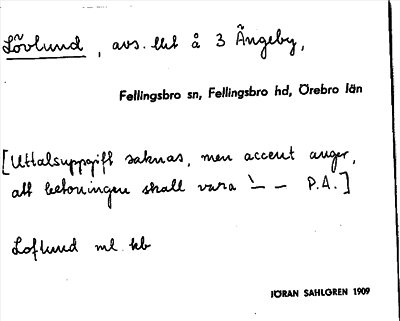 Lövlund, avs. lht å 3 Ängeby,
Fellingsbro sn, Fellingsbro hd, Örebro län
[Uttalsuppgift saknas, men accent anger,
att betoningen skall vara `– – P.A.]
Loflund ml. kb
JÖRAN SAHLGREN 1909